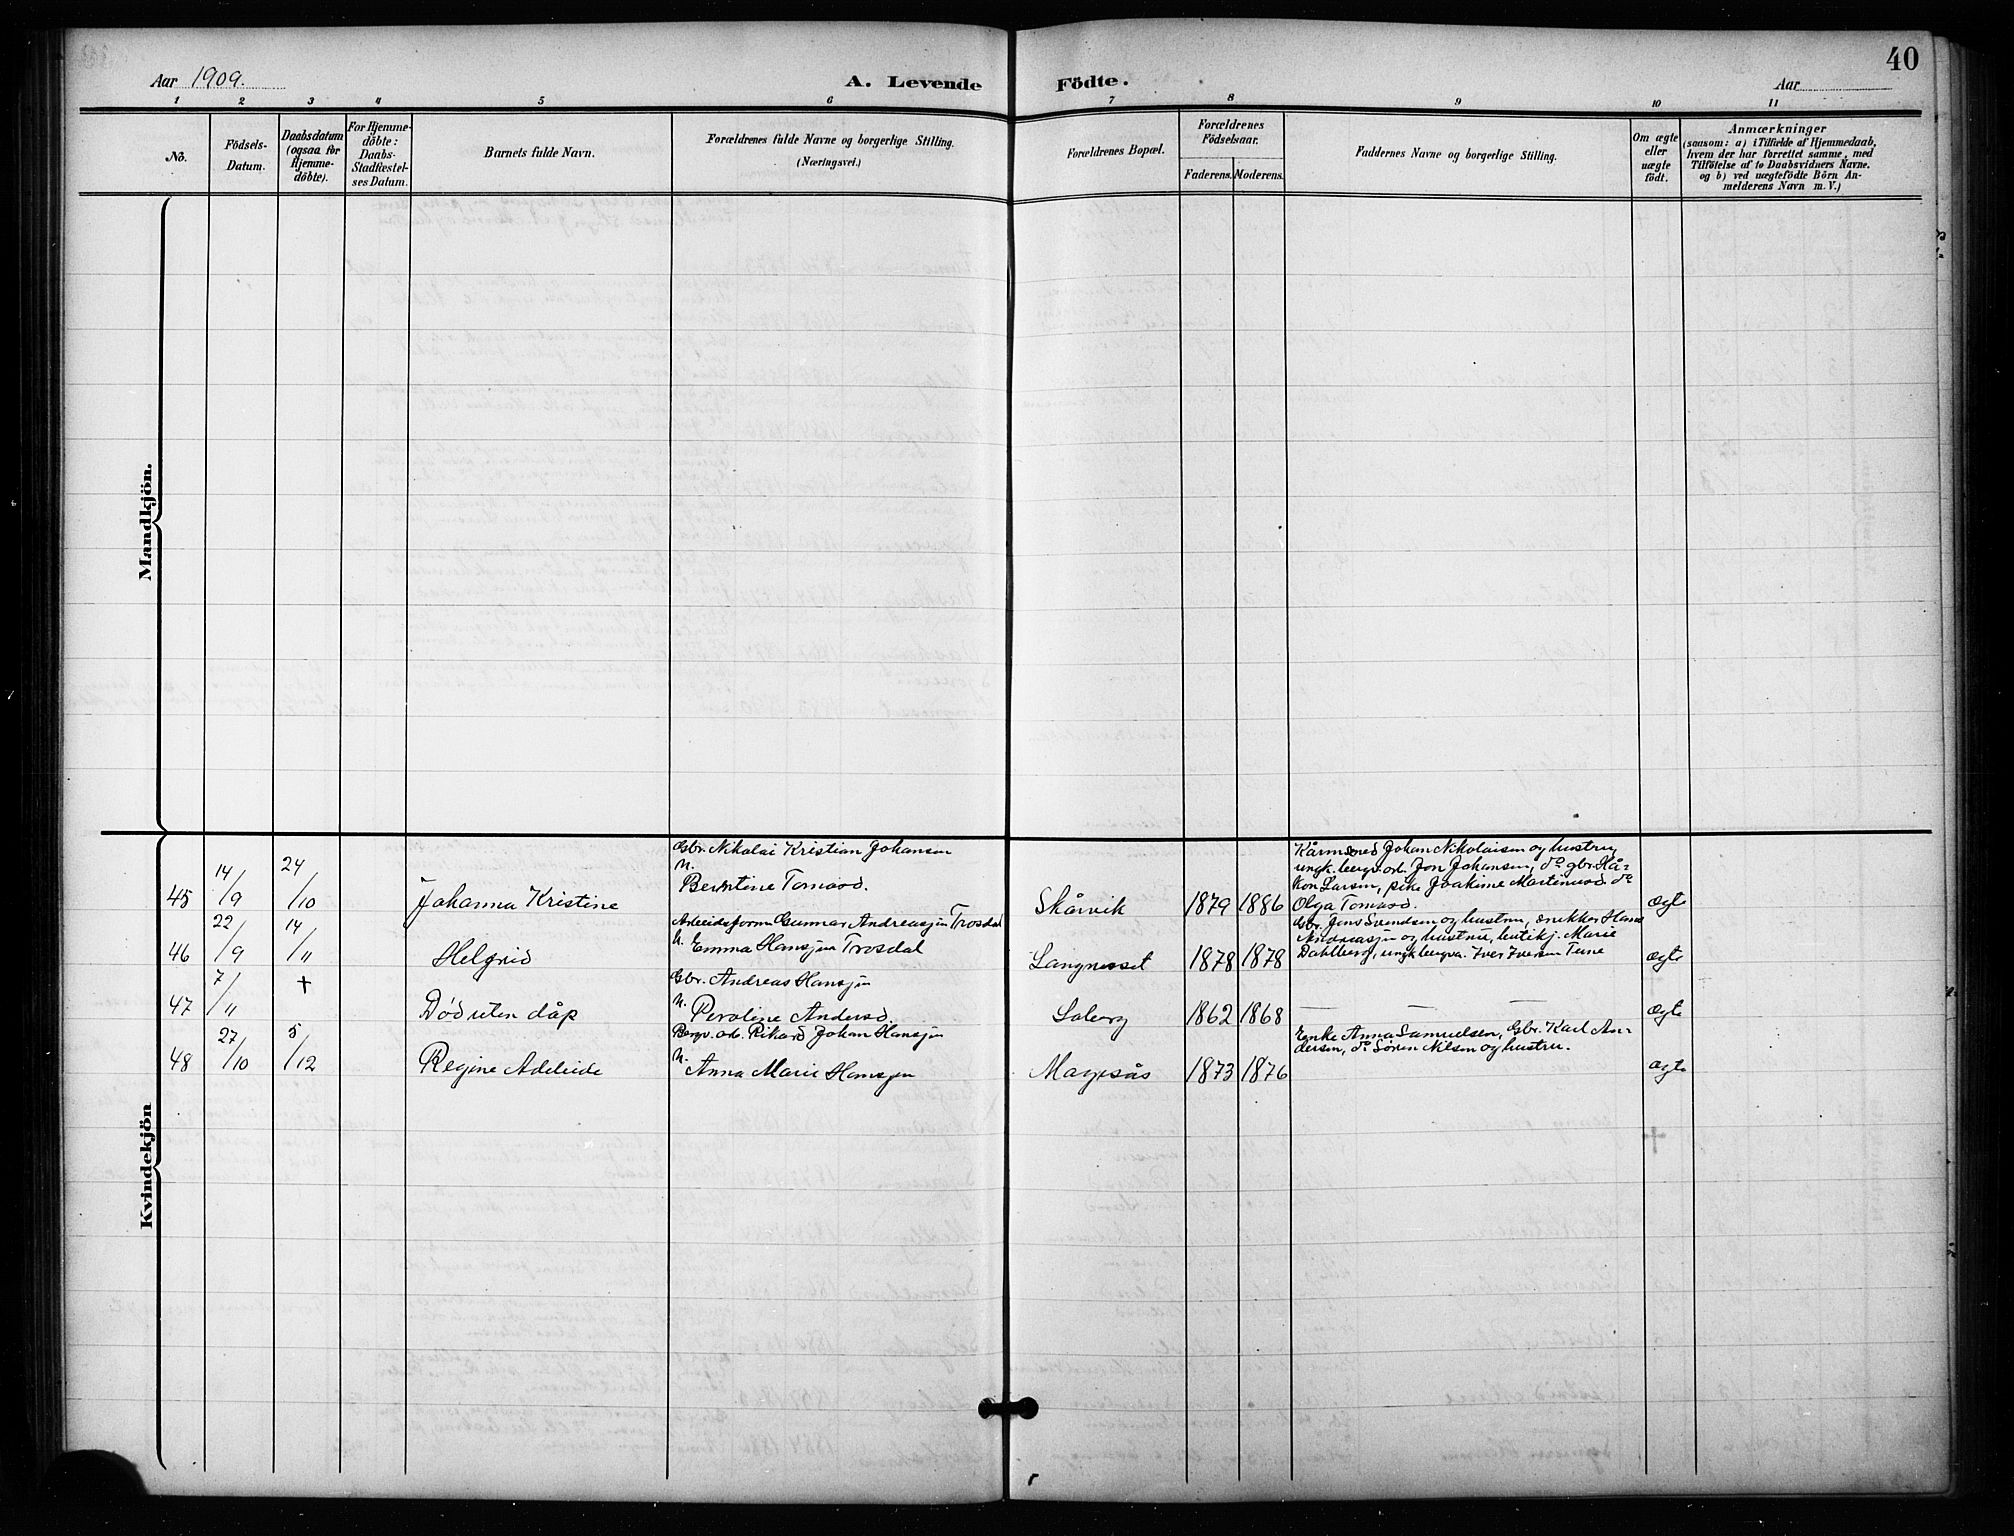 40
Aar 1909.
A. Levende Födte.
Aar
1 2 3 4 5 6 7 8 9 10 11
No.
Födsels-
Datum.
Daabsdatum
(ogsaa for
Hjemme-
döbte).
For Hjemme-
döbte:
Daabs-
Stadfestel-
ses Datum.
Barnets fulde Navn.
Forældrenes fulde Navne og borgerlige Stilling.
(Næringsvei.)
Forældrenes Bopæl.
Forældrenes
Födselsaar.
Faderens. Moderens.
Faddernes Navne og borgerlige Stilling.
Om ægte
eller
uægte
födt.
Anmærkninger
(saasom: a) i Tilfælde af Hjemmedaab,
hvem der har forrettet samme, med
Tilföielse af to Daabsvidners Navne.
og b) ved uægtefödte Börn An-
melderens Navn m. V.)
Mandkjön.
Kvindekjön
45
14/9
24/10
Johanna Kristine
Gbr. Nikolai Kristian Johansen
h.
Berntine Tomasd.
Skårvik
1879 1886
Johan Nikolaisen og hustru,
ungk. Jon Johansen, do gbr. Hå-
kon Larsen, pike Joakime Martinusd. do
Olga Tomasd.
ægte
46
22/9
14/11
Helgrid
Arbeidsform Gunnar Andreassen Trosdal
h. Emma Hansen Trosdal
Langnesset
1878 1878
Gbr. Jens Svendsen og hustru, snikker Hans
Andreassen og hustru, butikj. Marie
Dahlberg, ungk. Iver Iversen Tune
ægte
47
7/11
+
Død uten dåp
Gbr. Andreas Hansen
h.
Peroline Andersd.
Soberg
1862 1868
— — —
ægte
48
27/10
5/12
Regine Adeleide
Bergv. arb. Rikard Johan Hansen
h.
Anna Marie Hansen
Magesås
1873 1876
Enke Anna Samuelsen, Gbr. Karl An-
dersen, do Sören Nilsen og hustru.
ægte